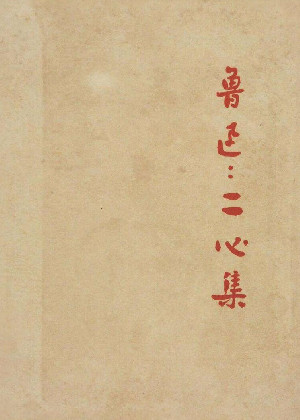 鲁迅：二心集